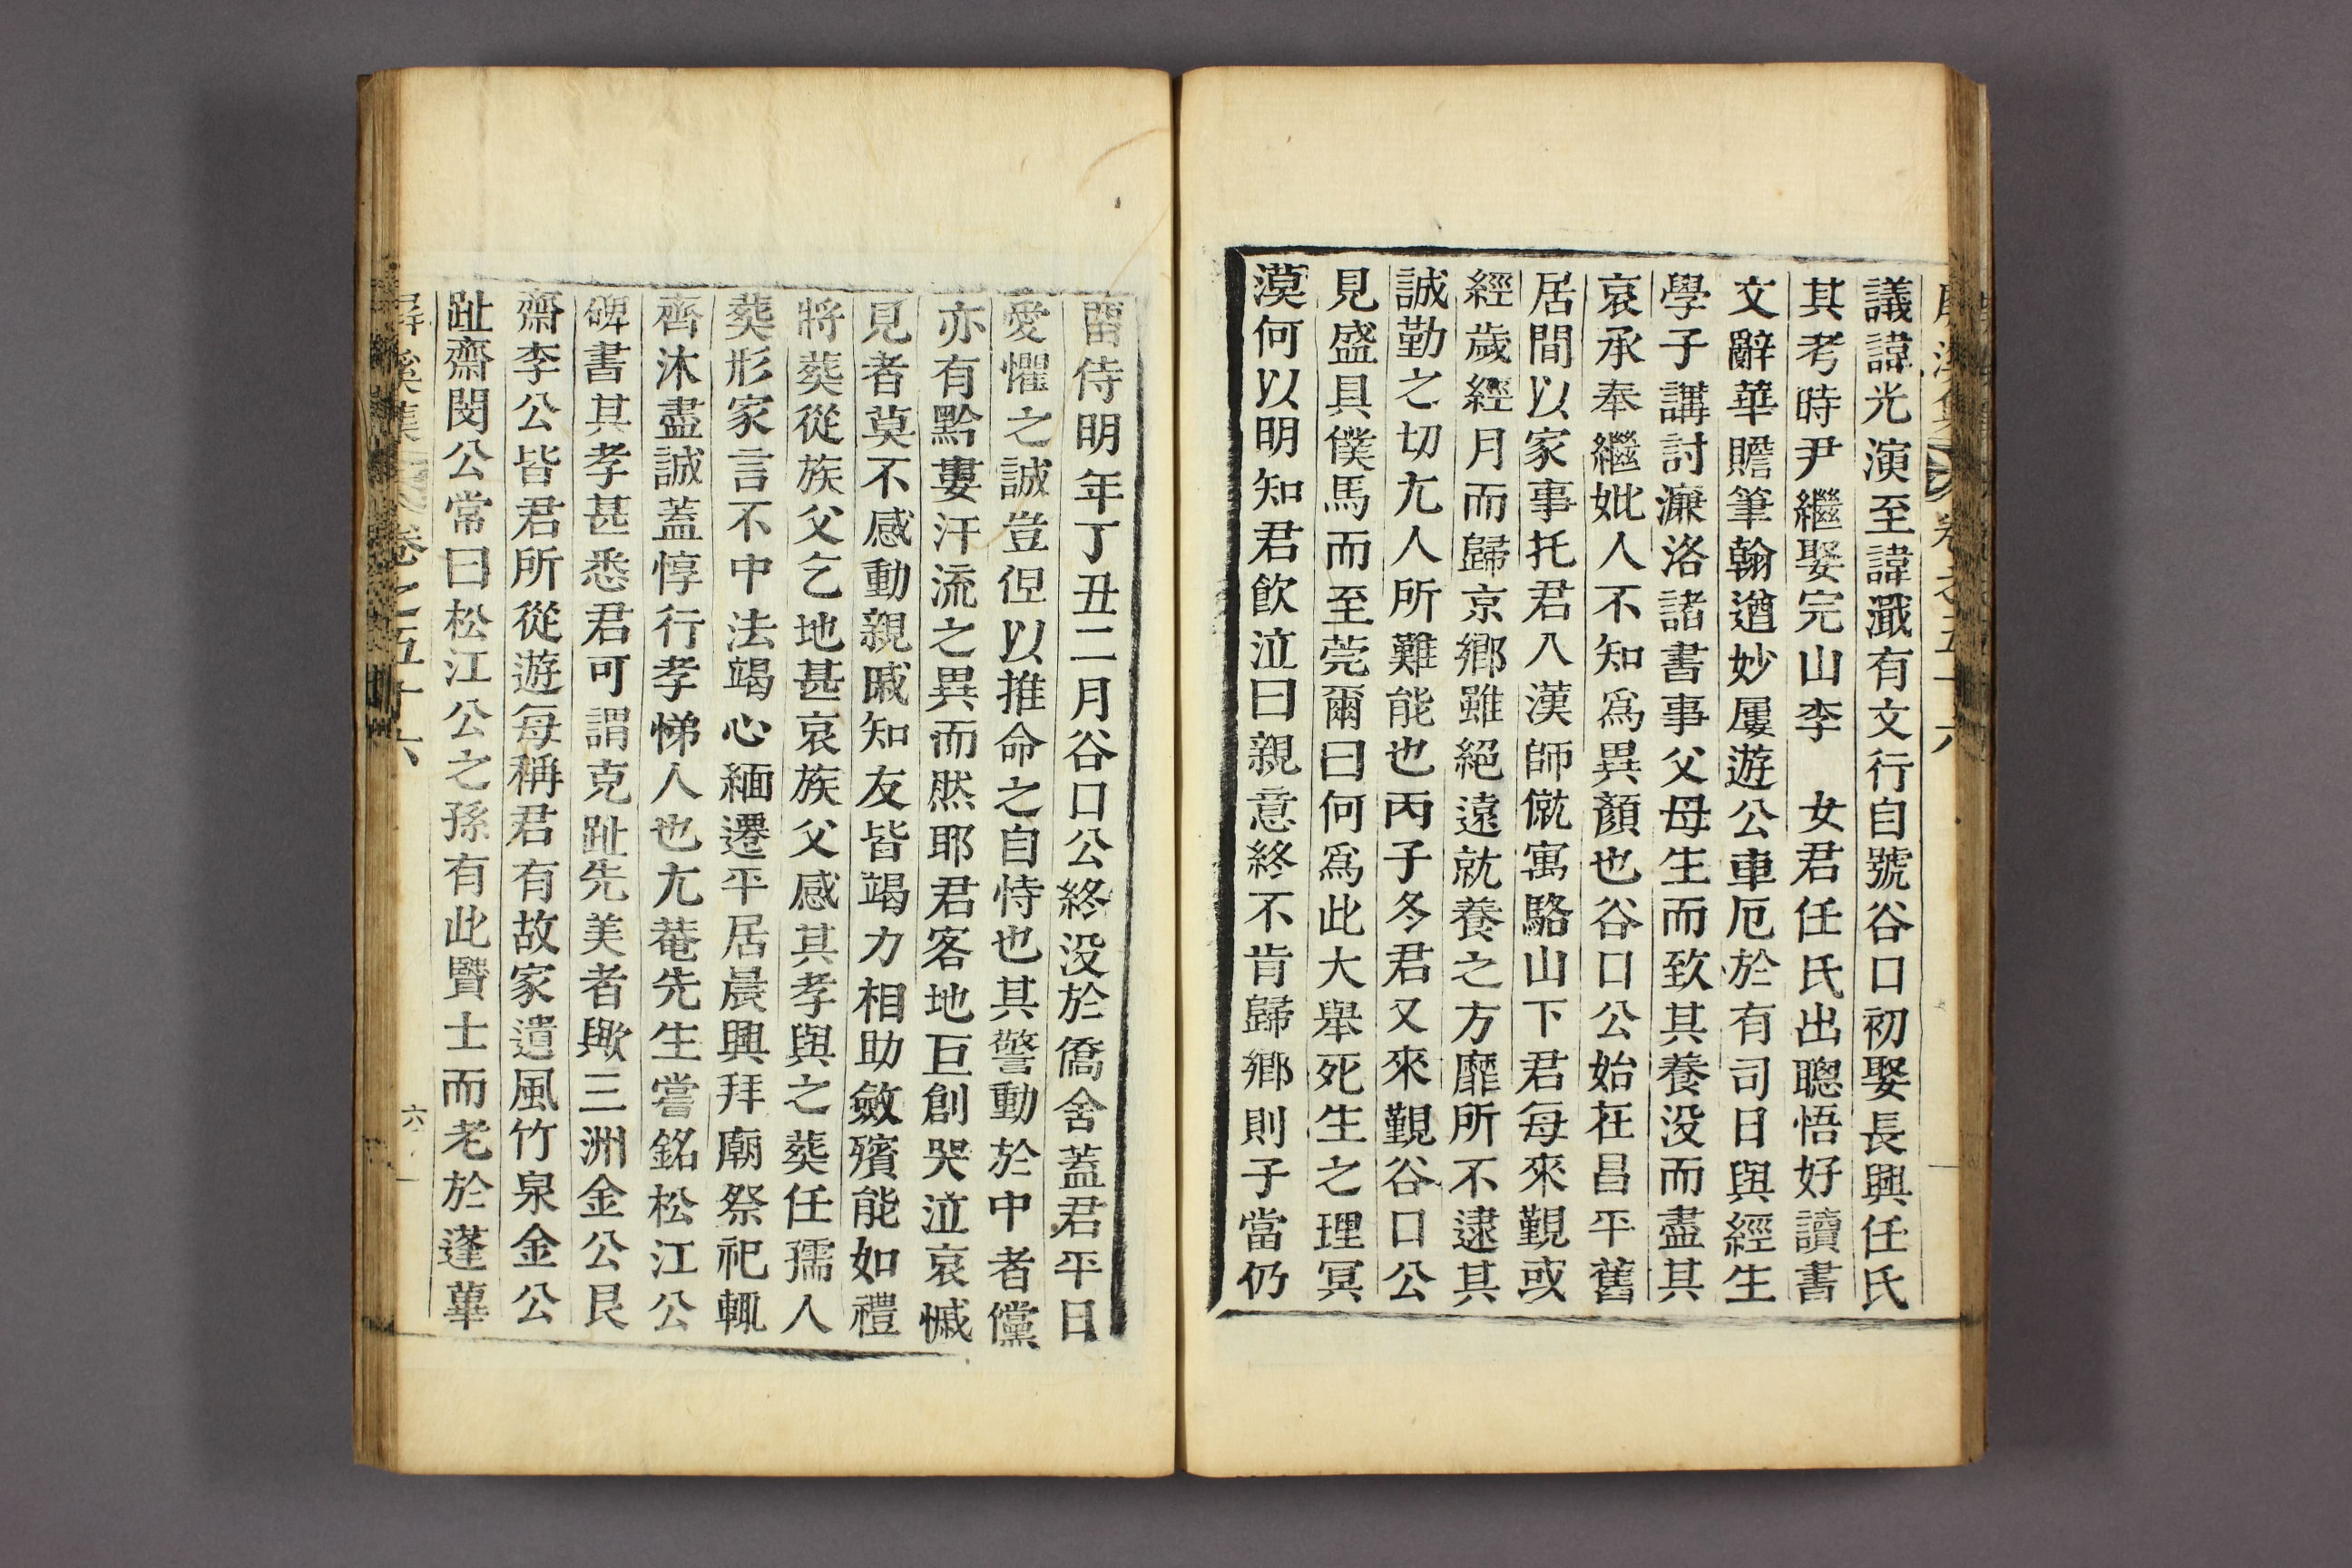 議諱光演至諱濈有文行自號谷口初娶長興任氏
其考時尹繼娶完山李　女君任氏出聰悟好讀書
文辭華贍筆翰遒妙屢遊公車厄於有司日與經生
學子講討濂洛諸書事父母生而致其養没而盡其
哀承奉繼妣人不知爲異顏也谷口公始在昌平舊
居間以家事托君入漢師僦寓駱山下君每來覲或
經歲經月而歸京鄉雖絕遠就養之方靡所不逮其
誠勤之切尢人所難能也丙子冬君又來覲谷口公
見盛具僕馬而至莞爾曰何爲此大舉死生之理冥
漠何以明知君飮泣曰親意終不肯歸鄉則子當仍
留侍明年丁丑二月谷口公終没於僑舍蓋君平日
愛懼之誠豈但以推命之自恃也其警動於中者儻
亦有黔婁汗流之異而然耶君客地巨創哭泣哀慽
見者莫不感動親戚知友皆竭力相助斂殯能如禮
將葬從族父乞地甚哀族父感其孝與之葬任孺人
葬形家言不中法竭心緬遷平居晨興拜廟祭祀輒
齊沐盡誠蓋惇行孝悌人也尢菴先生嘗銘松江公
碑書其孝甚悉君可謂克趾先美者歟三洲金公艮
齋李公皆君所從遊每稱君有故家遺風竹泉金公
趾齋閔公常曰松江公之孫有此賢士而老於蓬蓽
屛溪集　卷之五十六　六